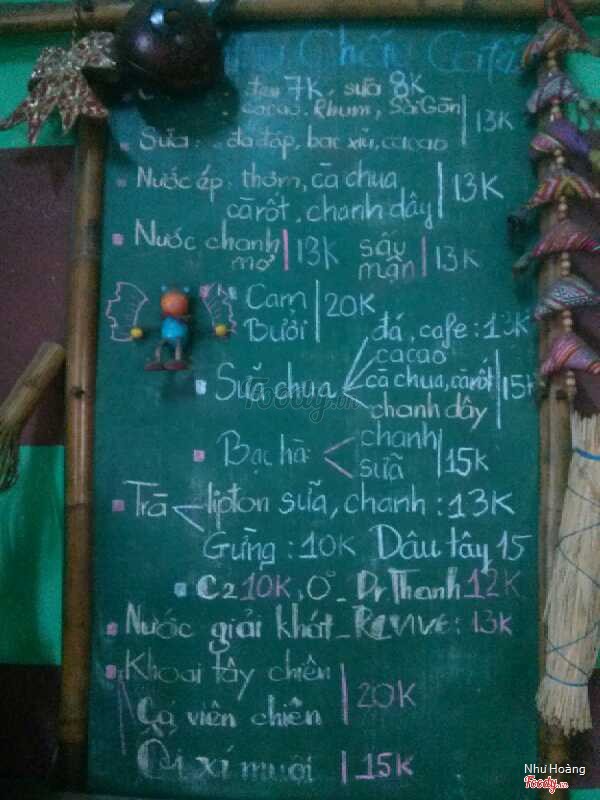 Cafe
đen 7K, sữa 8K
cacao, Rhum, Sài Gòn 13K
Sữa: đá đáp, bạc xỉu, cacao
Nước ép: thơm, cà chua
càrốt, chanh dây 13K
Nước chanh 13K sấu 13K
mơ mận
Cam 20K
Bưởi
đá, cafe: 13K
cacao
Sữa chua cà chua, cà rốt 15K
chanh dây
Bạc hà chanh 15K
sữa
Trà lipton sữa, chanh: 13K
Gừng: 10K Dâu tây 15
C2 10K, 0° - Dr Thanh 12K
Nước giải khát - REVIVE: 13K
Khoai tây chiên 20K
Cá viên chiên
Ổi xí muội 15K
Foody.vn
Như Hoàng
Foody.vn